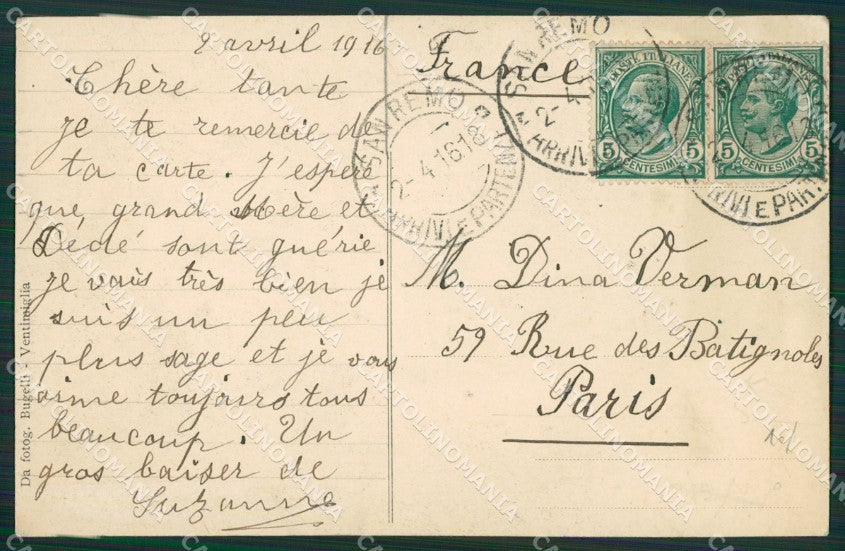 2 avril 1916
Chère tante
je te remercie de
ta carte. J'espère
que grand Mère et
Dédé sont guérie
je vais très bien je
suis un peu
plus sage et je vous
aime toujours tous
beaucoup. Un
gros baiser de
Suzanne
Da fotog. Bugelli - Ventimiglia
France
SAN REMO
2-4.16.18
ARRIVI E PARTENZE
SAN REMO
2-4
ARRIVI E PARTENZE
POSTE ITALIANE
5 5
CENTESIMI
5 5
CENTESIMI
ARRIVI E PARTE
M. Dina Verman
59 Rue des Batignoles
Paris
CARTOLINOMANIA